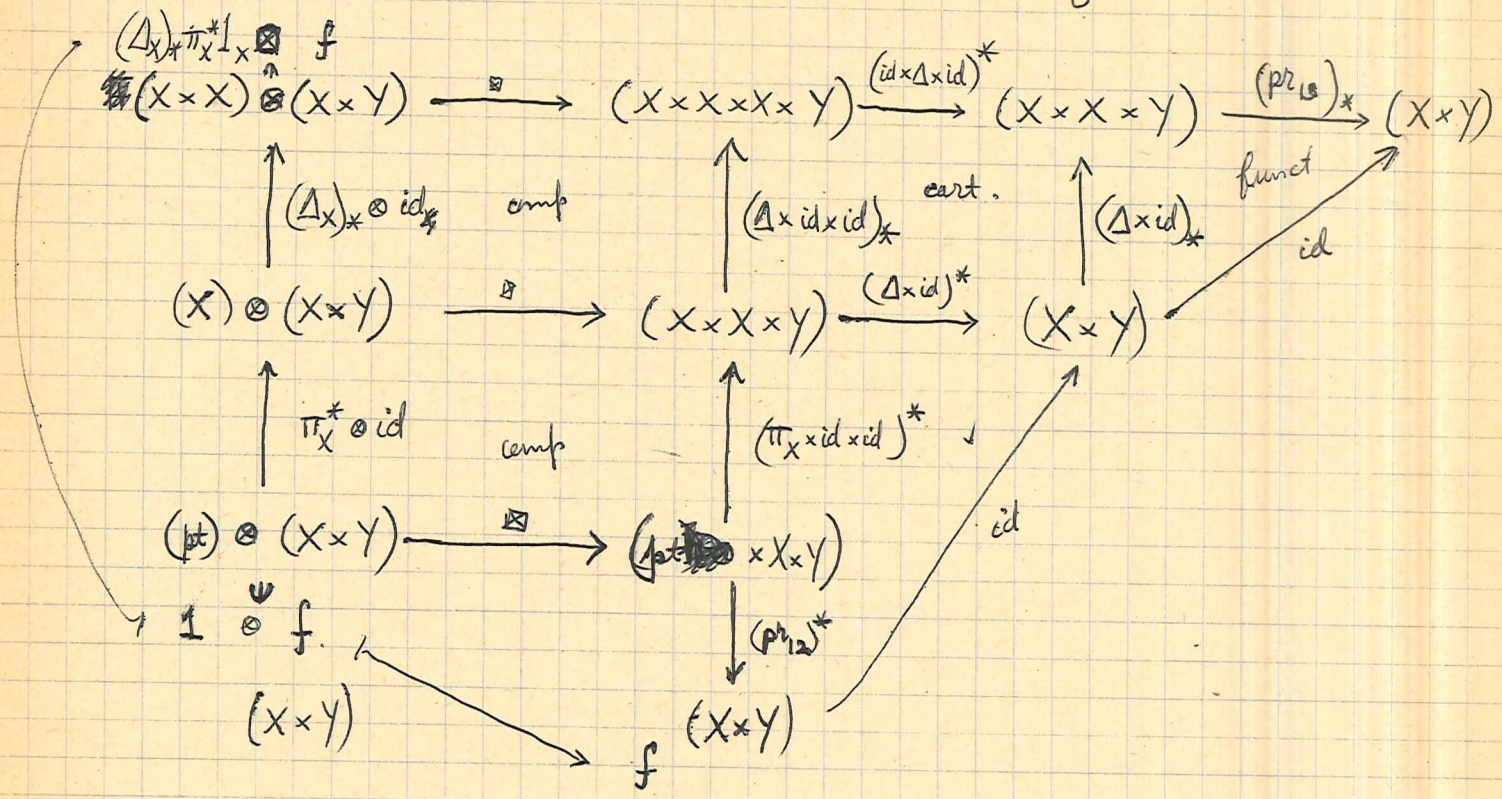 (Δ_X)_* π_X^* 1_X ⊠ f
(X × X) ⊗ (X × Y) ⟶ ⊠ (X × X × X × Y) ⟶ (id × Δ × id)^* (X × X × Y) ⟶ (pr_13)_* (X × Y)
funct
(Δ_X)_* ⊗ id_* comp (Δ × id × id)_* cart. (Δ × id)_* id
(X) ⊗ (X × Y) ⟶ ⊠ (X × X × Y) ⟶ (Δ × id)^* (X × Y)
π_X^* ⊗ id comp (π_X × id × id)^* ↓
(pt) ⊗ (X × Y) ⟶ ⊠ (pt × X × Y) id
1 ⊗ f. (pr_12)^*
(X × Y) (X × Y)
f